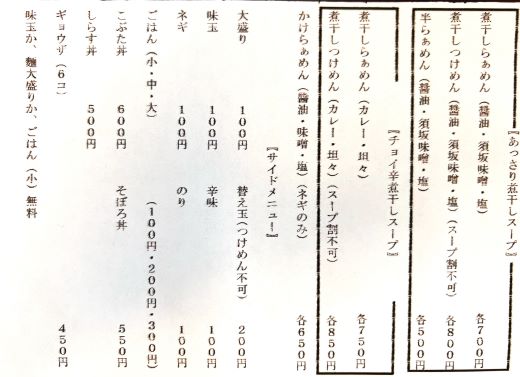 『あっさり煮干しスープ』
煮干しらぁめん（醤油・須坂味噌・塩） 各700円
煮干しつけめん（醤油・須坂味噌・塩）（スープ割不可） 各800円
半らぁめん（醤油・須坂味噌・塩） 各500円
『チョイ辛煮干しスープ』
煮干しらぁめん（カレー・坦々） 各750円
煮干しつけめん（カレー・坦々）（スープ割不可） 各850円
かけらぁめん（醤油・味噌・塩）（ネギのみ） 各650円
『サイドメニュー』
大盛り 100円 替え玉（つけめん不可） 200円
味玉 100円 辛味 100円
ネギ 100円 のり 100円
ごはん（小・中・大） （100円・200円・300円）
こぶた丼 600円 そぼろ丼 550円
しらす丼 500円
ギョウザ（6コ） 450円
味玉か、麺大盛りか、ごはん（小）無料